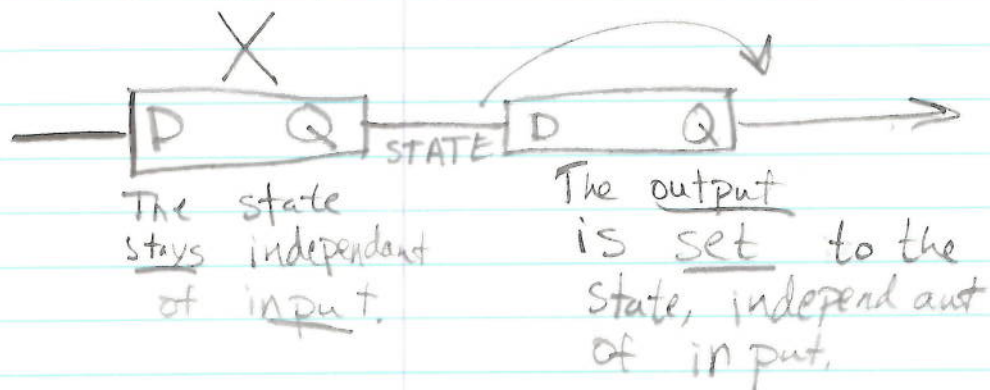 X
D Q STATE D Q
The state
stays independant
of input.
The output
is set to the
state, independant
of input.